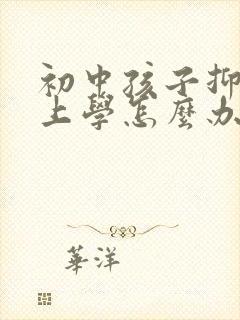 初中孩子抑
上學怎麼办
華洋